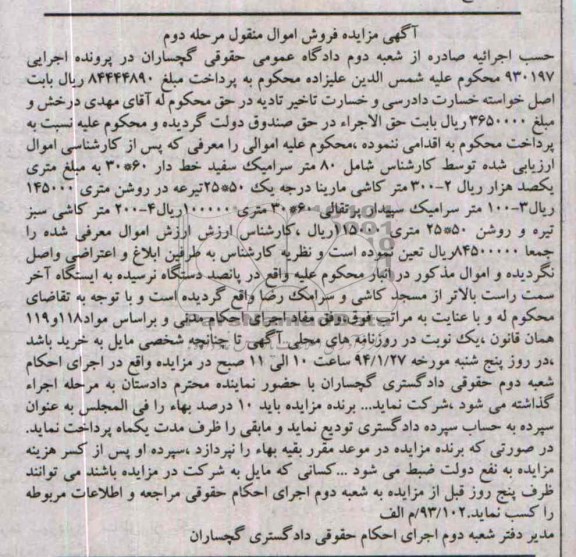 آگهی مزایده فروش اموال منقول مرحله دوم
حسب اجرائیه صادره از شعبه دوم دادگاه عمومی حقوقی گچساران در پرونده اجرایی
۹۳۰۱۹۷ محکوم علیه شمس الدین علیزاده محکوم به پرداخت مبلغ ۸۴۴۴۴۸۹۰ ریال بابت
اصل خواسته خسارت دادرسی و خسارت تاخیر تادیه در حق محکوم له آقای مهدی درخش و
مبلغ ۳۶۵۰۰۰۰ ریال بابت حق الاجراء در حق صندوق دولت گردیده و محکوم علیه نسبت به
پرداخت محکوم به اقدامی ننموده ،محکوم علیه اموالی را معرفی که پس از کارشناسی اموال
ارزیابی شده توسط کارشناس شامل ۸۰ متر سرامیک سفید خط دار ۶۰*۳۰ به مبلغ متری
یکصد هزار ریال ۲-۳۰۰ متر کاشی مارینا درجه یک ۵۰*۲۵تیرعه در روشن متری ۱۴۵۰۰۰
ریال۳-۱۰۰ متر سرامیک سپیدار پرتقالی ۶۰*۳۰ متری ۱۰۰۰۰۰ریال۴-۲۰۰ متر کاشی سبز
تیره و روشن ۵۰*۲۵ متری ۱۱۵۰۰۰ریال ،کارشناس ارزش ارزش اموال معرفی شده را
جمعا ۸۴۵۰۰۰۰۰ریال تعین نموده است و نظریه کارشناس به طرفین ابلاغ و اعتراضی واصل
نگردیده و اموال مذکور در انبار محکوم علیه واقع در پانصد دستگاه نرسیده به ایستگاه آخر
سمت راست بالاتر از مسجد کاشی و سرامک رضا واقع گردیده است و با توجه به تقاضای
محکوم له و با عنایت به مراتب فوق وفق مفاد اجرای احکام مدنی و براساس مواد۱۱۸و۱۱۹
همان قانون ،یک نوبت در روزنامه های محلی آگهی تا چنانچه شخصی مایل به خرید باشد
،در روز پنج شنبه مورخه ۹۴/۱/۲۷ ساعت ۱۰ الی ۱۱ صبح در مزایده واقع در اجرای احکام
شعبه دوم حقوقی دادگستری گچساران با حضور نماینده محترم دادستان به مرحله اجراء
گذاشته می شود ،شرکت نماید... برنده مزایده باید ۱۰ درصد بهاء را فی المجلس به عنوان
سپرده به حساب سپرده دادگستری تودیع نماید و مابقی را ظرف مدت یکماه پرداخت نماید.
در صورتی که برنده مزایده در موعد مقرر بقیه بهاء را نپردازد ،سپرده او پس از کسر هزینه
مزایده به نفع دولت ضبط می شود ...کسانی که مایل به شرکت در مزایده باشند می توانند
ظرف پنج روز قبل از مزایده به شعبه دوم اجرای احکام حقوقی مراجعه و اطلاعات مربوطه
را کسب نماید.۹۳/۱۰۲/م الف
مدیر دفتر شعبه دوم اجرای احکام حقوقی دادگستری گچساران